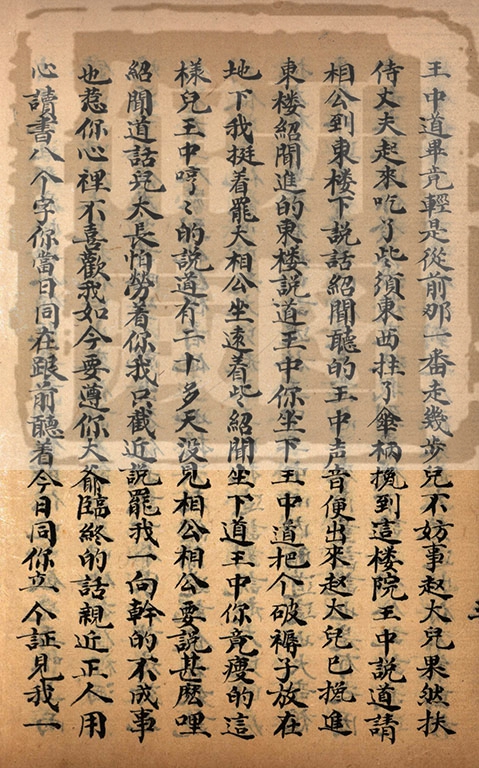 王中道畢竟輕是從前那一番走幾步兒不妨事赵大兒果然扶
侍丈夫起來吃了些須東西拄了傘柄挽到這楼院王中說道請
相公到東楼下說話紹聞聽的王中声音便出來赵大兒已挽進
東楼紹聞進的東楼說道王中你坐下王中道把个破褥子放在
地下我挺着罷大相公坐遠着些紹聞坐下道王中你竟瘦的這
樣兒王中哼〻的說道有二十多天没見相公相公要說甚麽哩
紹聞道話兒太長怕勞着你我只截近說罷我一向幹的不成事
也惹你心裡不喜歡我如今要遵你大爺臨終的話親近正人用
心讀書八个字你當日同在跟前聽着今日同你立个証見我一